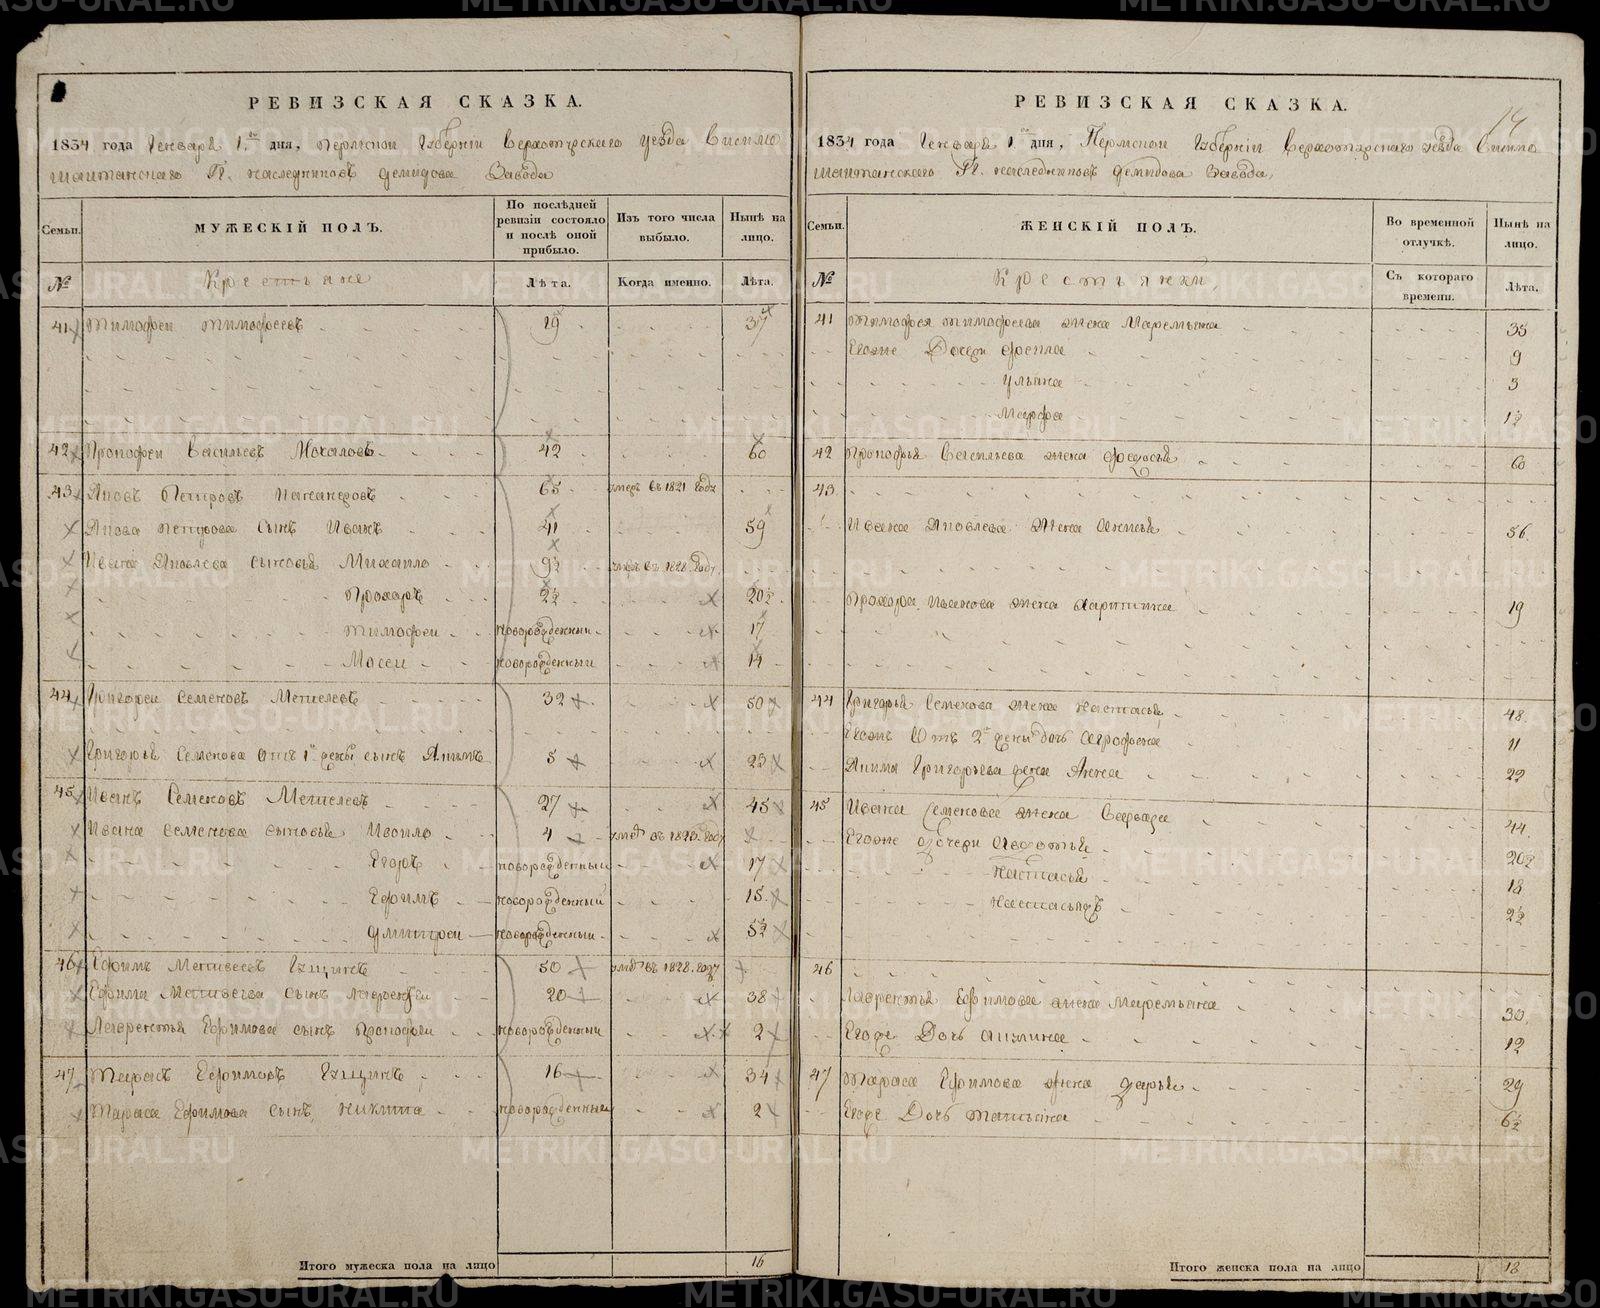 РЕВИЗСКАЯ СКАЗКА.
1834 года Генваря 1го дня, Пермской Губернiи Верхотурского уезда Висимо
шайтанского Гг. наследниковъ Демидова Завода
Семьи.
МУЖЕСКIЙ ПОЛЪ.
По послѣдней ревизiи состояло и послѣ оной прибыло.
Изъ того числа выбыло.
Нынѣ на лицо.
№
Крестьяне
Лѣта.
Когда именно.
Лѣта.
41 Тимофеи Тимофеевъ 19 37
42 Прокофеи Васильевъ 42 60
43 Яковъ Петровъ 65 умеръ въ 1821 году
Якова Петрова сынъ Иванъ 41 59
Ивана Яковлева сыновья Михаило 9½ умеръ въ 1828 году
Прохоръ 2½ 20½
Тимофеи новорожденныи 17
Мосеи новорожденныи 14
44 Григореи Семеновъ Метелевъ 32 50
Григорья Семенова отъ 1й жены сынъ Акимъ 5 23
45 Иванъ Семеновъ Метелевъ 27 45
Ивана Семенова сыновья 4
Егоръ новорожденныи 17
Ефимъ новорожденныи 15
Дмитреи новорожденныи 5½
46 Ефимъ Матвеевъ Гущинъ 50 въ 1828 году
Ефима Матвеева сынъ Лаврентеи 20 38
Лаврентья Ефимова сынъ Прокофеи новорожденныи 2
47 Тарасъ Ефимовъ Гущинъ 16 34
Тараса Ефимова сынъ Никита новорожденныи 2
Итого мужеска пола на лицо 16
14
РЕВИЗСКАЯ СКАЗКА.
1834 года Генваря 1го дня, Пермской Губернiи Верхотурского уезда Висимо
шайтанского Гг. наследниковъ Демидова Завода,
Семьи.
ЖЕНСКIЙ ПОЛЪ.
Во временной отлучкѣ.
Нынѣ на лицо.
№
Крестьянки,
Съ котораго времени.
Лѣта.
41 Тимофея Тимофеева жена Маремьяна 35
Егоже Дочери Фекла 9
Ульяна 3
Марфа 1½
42 Прокофья Васильева жена Федосья 60
43
Ивана Яковлева жена Анисья 56
Прохора Иванова жена Харитина 19
44 Григорья Семенова жена Настасья 48
Егожъ отъ 2й жены дочь Агрофена 11
Акима Григорьева жена Анна 22
45 Ивана Семенова жена Варвара 44
Егоже дочери Авдотья 20½
Настасья 18
2½
46
Лаврентья Ефимова жена Маремьяна 30
Егоже Дочь 12
47 Тараса Ефимова жена Дарья 29
Егоже Дочь Татьяна 6½
Итого женска пола на лицо 18
METRIKI.GASO-URAL.RU